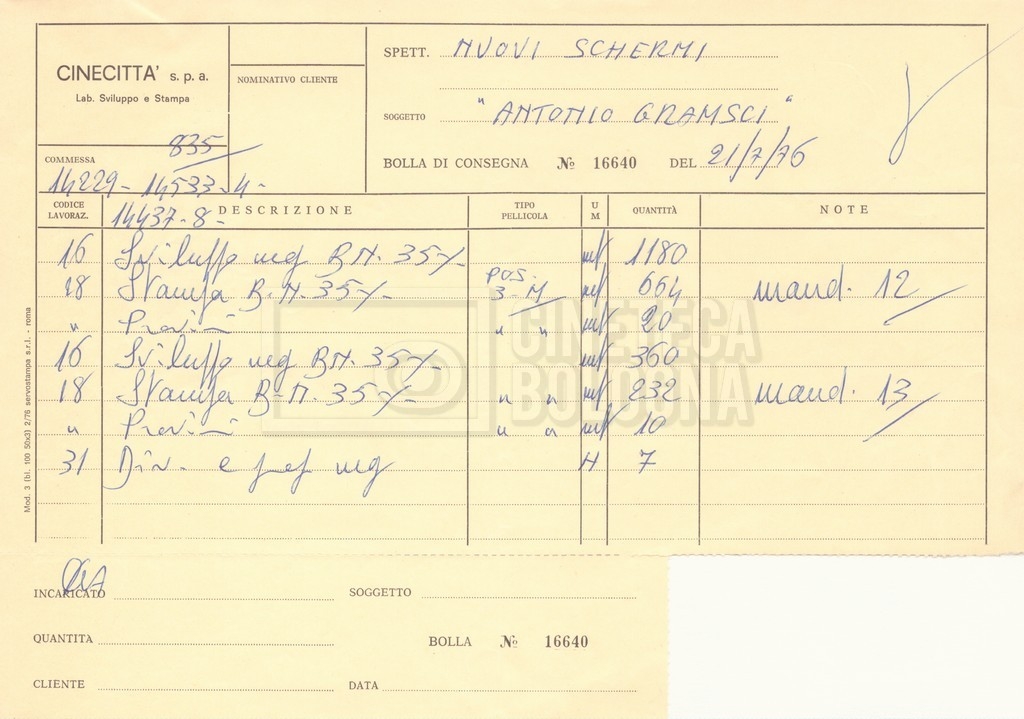 CINECITTA' s.p.a.
Lab. Sviluppo e Stampa
NOMINATIVO CLIENTE
SPETT. NUOVI SCHERMI
SOGGETTO "ANTONIO GRAMSCI"
BOLLA DI CONSEGNA № 16640 DEL 21/7/76
835
COMMESSA
14229 - 14533 - 4 -
14437 - 8 -
CODICE LAVORAZ. DESCRIZIONE TIPO PELLICOLA U M QUANTITÀ NOTE
16 Sviluppo neg B.N. 35 mt 1180
18 Stampa B.N. 35 POS. 3-M mt 664 mand. 12
" Provini " " mt 20
16 Sviluppo neg B.N. 35 mt 360
18 Stampa B.N. 35 " " mt 232 mand. 13
" Provini " " mt 10
31 Div. e neg H 7
CINETECA
BOLOGNA
Mod. 3 (bl. 100 50x3) 2/76 servostampa s.r.l. - roma
INCARICATO SOGGETTO
QUANTITA BOLLA № 16640
CLIENTE DATA